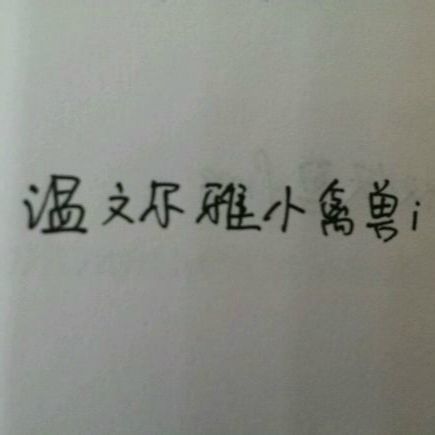 温文尔雅小禽兽i